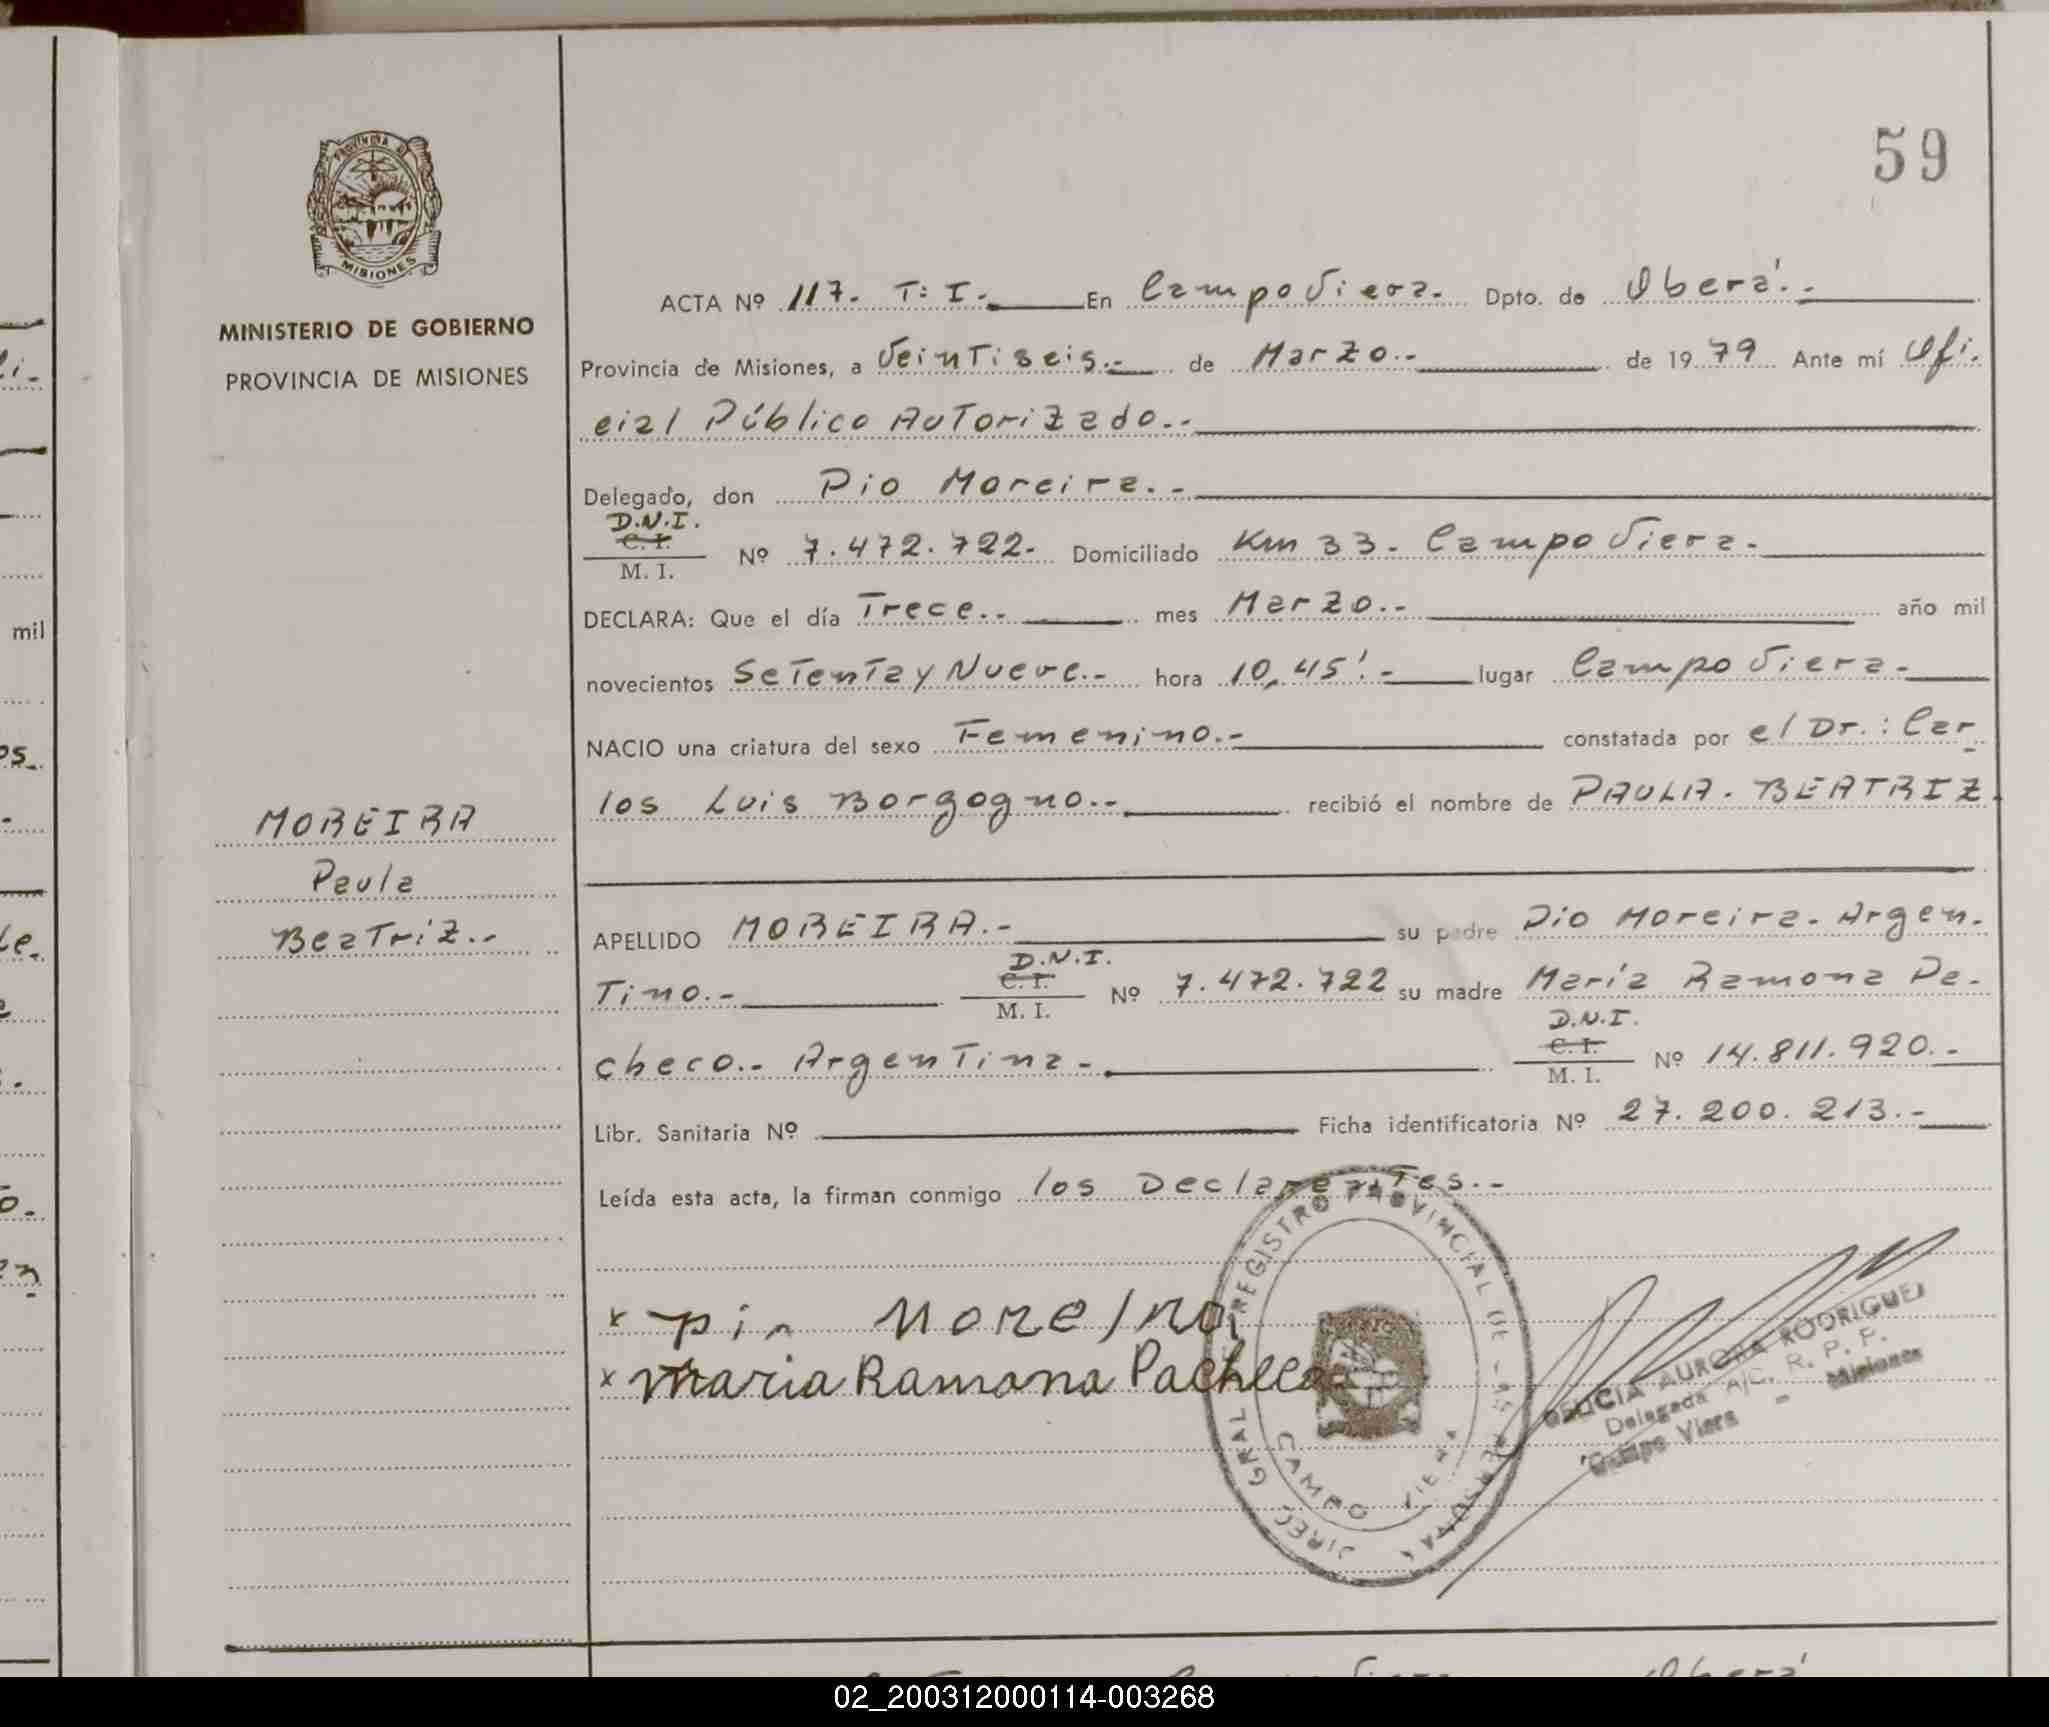 59
PROVINCIA DE
MISIONES
MINISTERIO DE GOBIERNO
PROVINCIA DE MISIONES
ACTA Nº 117.- T: I.- En Campo Viera.- Dpto. de Oberá.-
Provincia de Misiones, a Veintiseis.- de Marzo.- de 1979 Ante mí Ofi-
cial Público Autorizado.-
Delegado, don Pio Moreira.-
D.N.I.
C. I.
M. I.
Nº 7.472.722.- Domiciliado Km 33- Campo Viera.-
DECLARA: Que el día Trece.- mes Marzo.- año mil
novecientos Setenta y Nueve.- hora 10,45'.- lugar Campo Viera.-
NACIO una criatura del sexo Femenino.- constatada por el Dr.: Car
los Luis Borgogno.- recibió el nombre de PAULA. BEATRIZ.
MOREIRA
Paula
Beatriz.-
APELLIDO MOREIRA.- su padre Pio Moreira- Argen-
tino.- D.N.I.
C. I.
M. I.
Nº 7.472.722 su madre María Ramona Pa-
checo.- Argentina- D.N.I.
C. I.
M. I.
Nº 14.811.920.-
Libr. Sanitaria Nº Ficha identificatoria Nº 27.200.213.-
Leída esta acta, la firman conmigo los Declarantes.-
x pio Moreira
x Maria Ramona Pacheco
DIREC. GRAL REGISTRO PROVINCIAL DE LAS PERSONAS
CAMPO VIERA
AURORA RODRIGUEZ
Delegada A/C. R. P. P.
Campo Viera - Misiones
mil
02_200312000114-003268